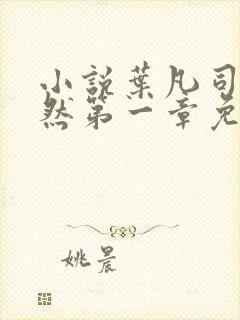 小説葉凡司
然第一章免
姚晨